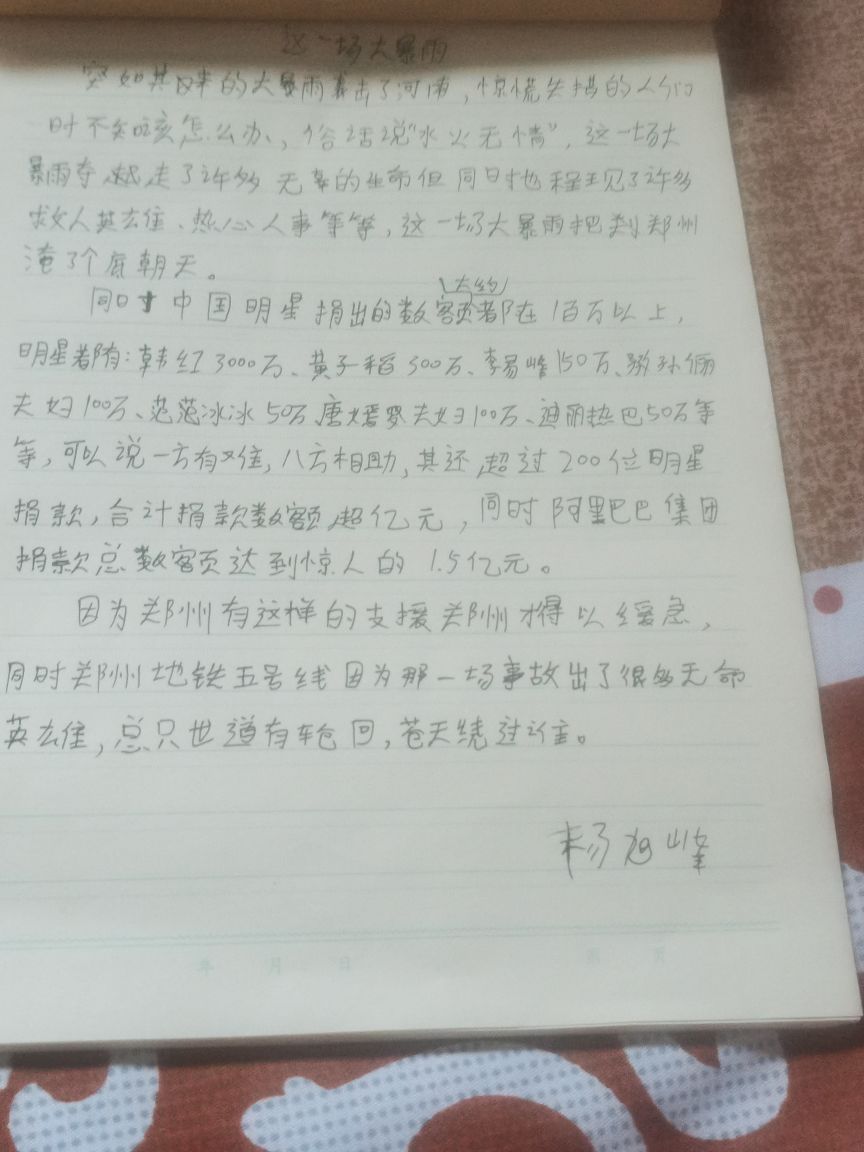 这一场大暴雨
突如其来的大暴雨袭击了河南，惊慌失措的人们
时不知该怎么办，俗话说"水火无情"，这一场大
暴雨夺走了许多无辜的生命但同时也程现了许多
救人英雄、热心人事等等，这一场大暴雨把郑州
淹了个底朝天。
大约
同时中国明星捐出的数额都在1百万以上，
明星都有：韩红3000万、黄子稻300万、李易峰150万、孙俪
夫妇100万、范范冰冰50万唐嫣罗夫妇100万、迪丽热巴50万等
等，可以说一方有难，八方相助，其还超过200位明星
捐款，合计捐款数额超亿元，同时阿里巴巴集团
捐款总数额达到惊人的1.5亿元。
因为郑州有这样的支援郑州才得以缓急，
同时郑州地铁五号线因为那一场事故出了很多无命
英雄，总只世道有轮回，苍天绕过谁。
杨旭峰
年 月 日 第 页